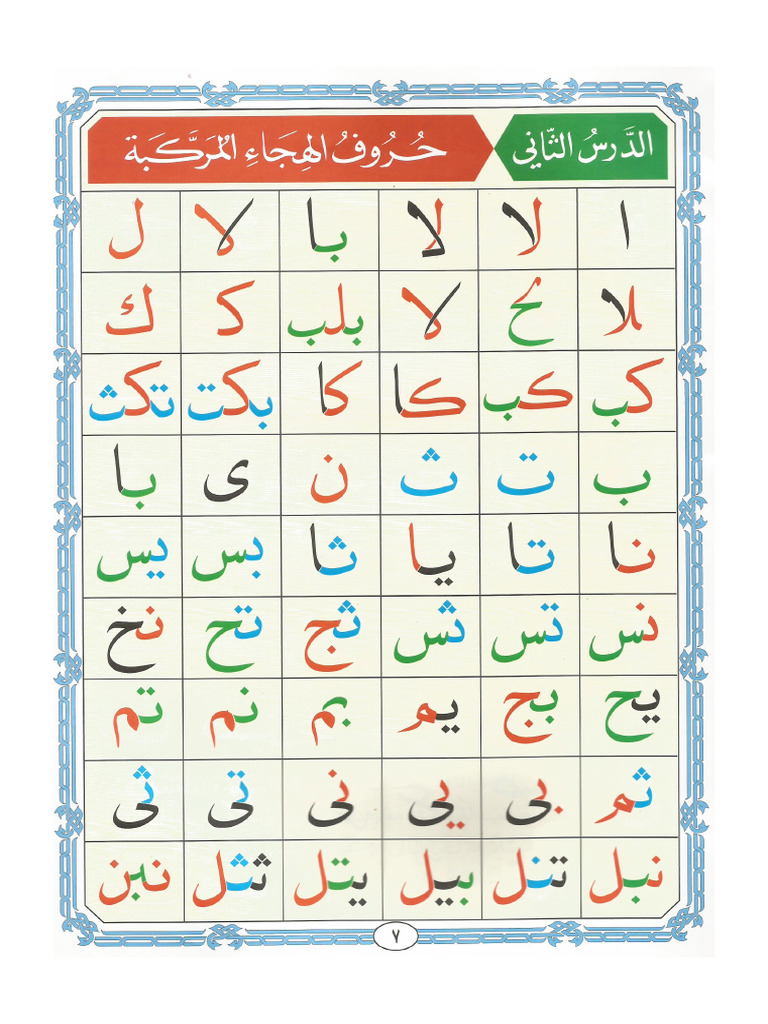 الدَّرسُ الثَّانِي حُرُوفُ الهِجَاءِ المُرَكَّبَة
ا لا لا با لا ل
ملا مح لا بلب كـ ك
كب كب كا كا بكت تكث
ب ت ث ن ى با
نا تا يا ثا بس يس
نس تس ثس ثج تح نخ
يح بج يم بم نم تم
ثم بى يى نى تى ثى
نبل تنل بيل يتل ثثل نبن
٧